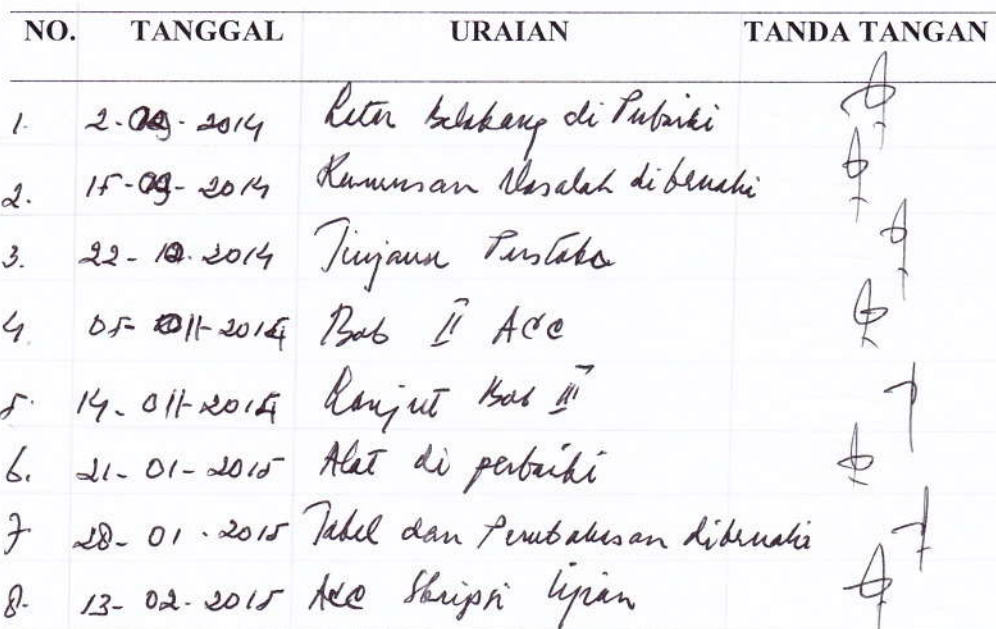 NO. TANGGAL URAIAN TANDA TANGAN
1. 2-09-2014 Latar Belakang di Perbaiki
2. 15-09-2014 Rumusan Masalah dibenahi
3. 22-10-2014 Tinjauan Pustaka
4. 05-11-2014 Bab II Acc
5. 14-011-2014 Lanjut Bab III
6. 21-01-2015 Alat di perbaiki
7 28-01-2015 Tabel dan Pembahasan dibenahi
8. 13-02-2015 Acc Skripsi Ujian